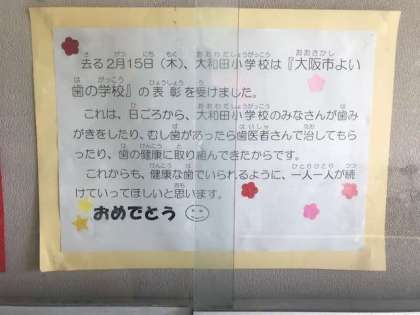 去る2月15日（木）、大和田小学校は『大阪市よい
歯の学校』の表彰を受けました。
これは、日ごろから、大和田小学校のみなさんが歯み
がきをしたり、むし歯があったら歯医者さんで治してもら
ったり、歯の健康に取り組んできたからです。
これからも、健康な歯でいられるように、一人一人が続
けていってほしいと思います。
おめでとう